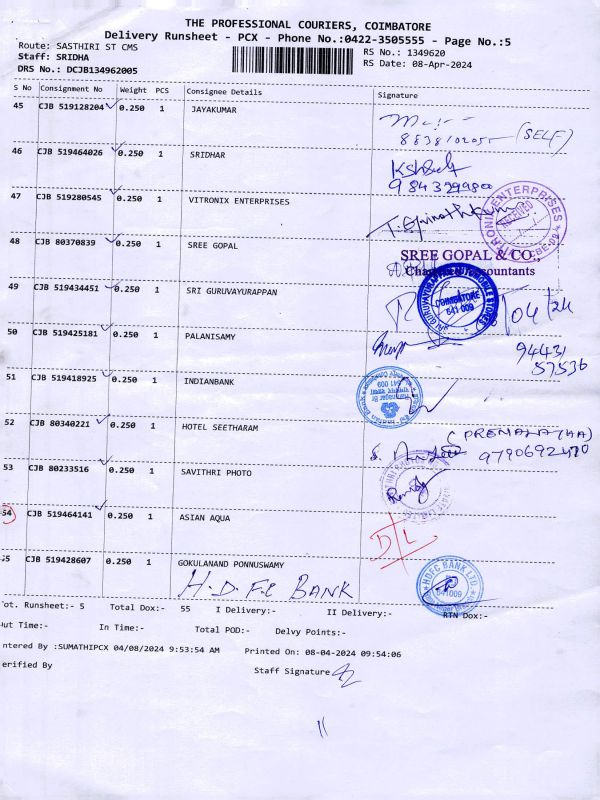 THE PROFESSIONAL COURIERS, COIMBATORE
Delivery Runsheet - PCX - Phone No.:0422-3505555 - Page No.:5
Route: SASTHIRI ST CMS
RS No.: 1349620
Staff: SRIDHA
RS Date: 08-Apr-2024
DRS No.: DCJB134962005
S No Consignment No Weight PCS Consignee Details Signature
45 CJB 519128204 0.250 1 JAYAKUMAR
8838102055 (SELF)
46 CJB 519464026 0.250 1 SRIDHAR
9843299800
47 CJB 519280545 0.250 1 VITRONIX ENTERPRISES
VITRONIX ENTERPRISES
RECEIVED
48 CJB 80370839 0.250 1 SREE GOPAL
SREE GOPAL & CO.,
Chartered Accountants
49 CJB 519434451 0.250 1 SRI GURUVAYURAPPAN
SRI GURUVAYURAPPAN AUTOMOBILE STORES
COIMBATORE
641 009
/04/24
50 CJB 519425181 0.250 1 PALANISAMY
94431
57536
51 CJB 519418925 0.250 1 INDIANBANK
641 009
52 CJB 80340221 1 0.250 1 HOTEL SEETHARAM
(PREMALATHA)
53 CJB 80233516 0.250 1 SAVITHRI PHOTO
54 CJB 519464141 0.250 1 ASIAN AQUA
D/L
55 CJB 519428607 0.250 1 GOKULANAND PONNUSWAMY
H.D.F.C BANK
HDFC BANK LTD
641009
ot. Runsheet:- 5 Total Dox:- 55 I Delivery:- II Delivery:- RTN Dox:-
ut Time:- In Time:- Total POD:- Delvy Points:-
ntered By :SUMATHIPCX 04/08/2024 9:53:54 AM Printed On: 08-04-2024 09:54:06
erified By Staff Signature